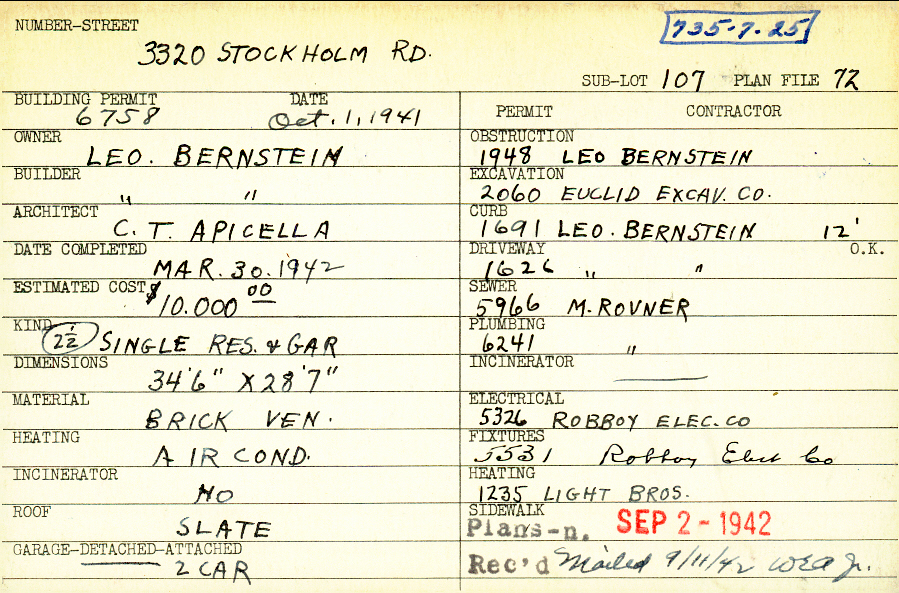 NUMBER-STREET
735-7-25
3320 STOCKHOLM RD.
SUB-LOT 107 PLAN FILE 72
BUILDING PERMIT DATE
6758 Oct. 1, 1941
OWNER
LEO. BERNSTEIN
BUILDER
" "
ARCHITECT
C. T. APICELLA
DATE COMPLETED
MAR. 30. 1942
ESTIMATED COST
$10.000 00
KIND
2½ SINGLE RES. & GAR
DIMENSIONS
34'6" X 28'7"
MATERIAL
BRICK VEN.
HEATING
AIR COND.
INCINERATOR
NO
ROOF
SLATE
GARAGE-DETACHED-ATTACHED
2 CAR
PERMIT CONTRACTOR
OBSTRUCTION
1948 LEO BERNSTEIN
EXCAVATION
2060 EUCLID EXCAV. CO.
CURB
1691 LEO. BERNSTEIN 12'
DRIVEWAY O.K.
1626 " "
SEWER
5966 M. ROVNER
PLUMBING
6241 "
INCINERATOR
ELECTRICAL
5326 ROBBOY ELEC. CO
FIXTURES
5531 Robboy Elect Co
HEATING
1235 LIGHT BROS.
SIDEWALK
Plans-n. SEP 2 - 1942
Rec'd Mailed 9/11/42 Jr.